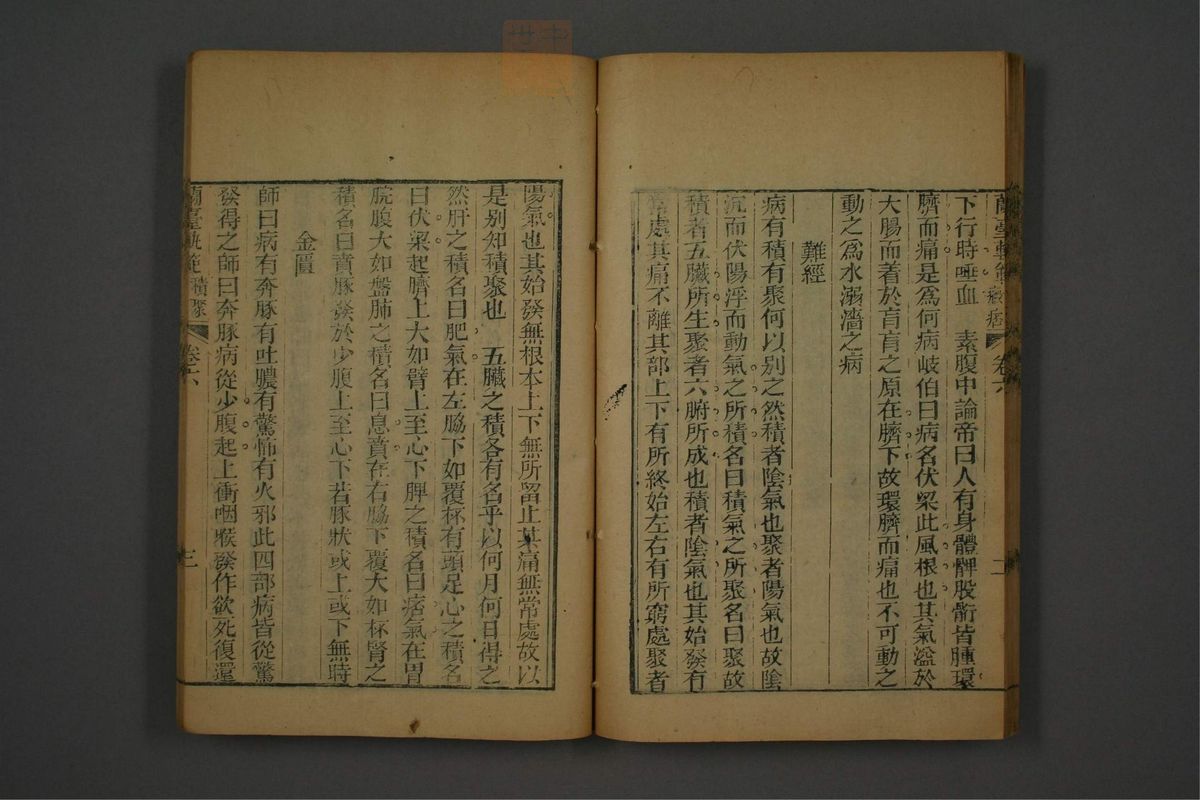 蘭臺軌範 卷六
下行時唾血 素腹中論帝曰人有身體髀股䯒皆腫環
臍而痛是爲何病岐伯曰病名伏梁此風根也其氣溢於
大腸而著於肓肓之原在臍下故環臍而痛也不可動之
動之爲水溺濇之病
難經
病有積有聚何以别之然積者陰氣也聚者陽氣也故陰
沉而伏陽浮而動氣之所積名曰積氣之所聚名曰聚故
積者五臟所生聚者六腑所成也積者陰氣也其始發有
常處其痛不離其部上下有所終始左右有所窮處聚者
陽氣也其始發無根本上下無所留止其痛無常處故以
是别知積聚也 五臟之積各有名乎以何月何日得之
然肝之積名曰肥氣在左脇下如覆杯有頭足心之積名
曰伏梁起臍上大如臂上至心下脾之積名曰痞氣在胃
脘腹大如盤肺之積名曰息賁在右脇下覆大如杯腎之
積名曰賁豚發於少腹上至心下若豚狀或上或下無時
金匱
師曰病有奔豚有吐膿有驚怖有火邪此四部病皆從驚
發得之師曰奔豚病從少腹起上衝咽喉發作欲死復還
蘭臺軌範 積聚 卷六 三